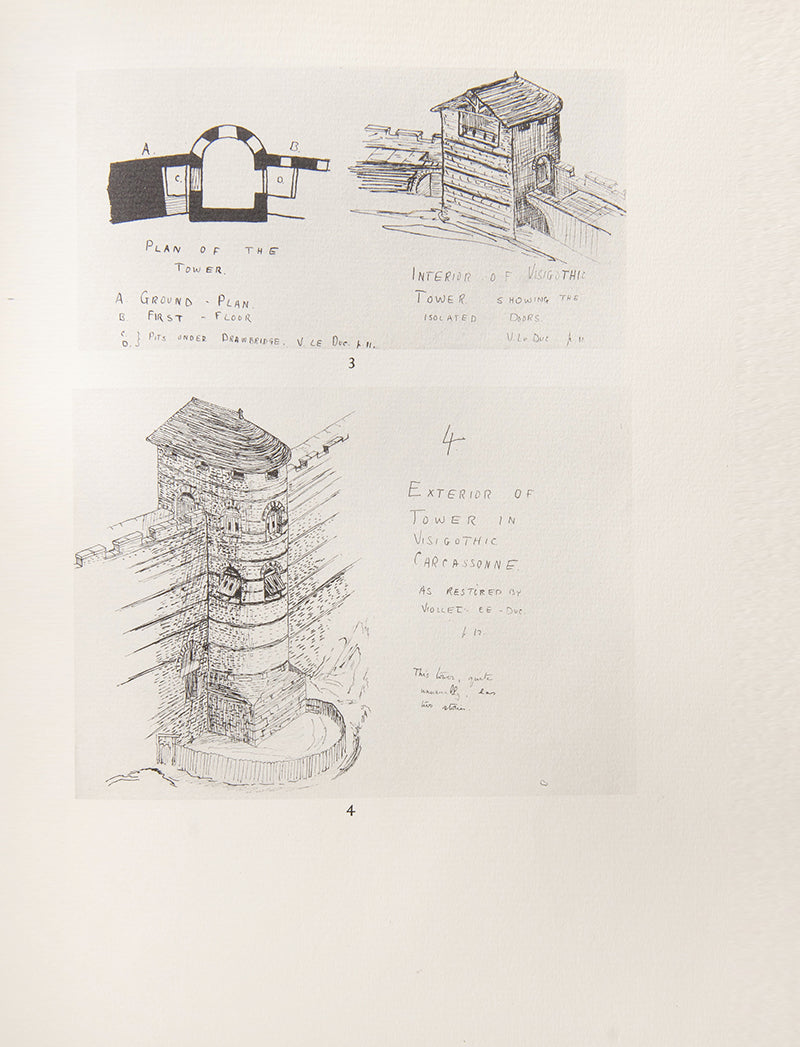 A.
B.
C.
D.
PLAN OF THE
TOWER.
A. GROUND - PLAN.
B. FIRST - FLOOR
C. } PITS UNDER DRAWBRIDGE. V. LE DUC. p. 11.
D.
INTERIOR OF VISIGOTHIC
TOWER SHOWING THE
ISOLATED DOORS.
V. LE DUC p. 11
3
4.
EXTERIOR OF
TOWER IN
VISIGOTHIC
CARCASSONNE.
AS RESTORED BY
VIOLLET-LE-DUC.
p 12.
This tower, quite
unusually, has
two stories.
4